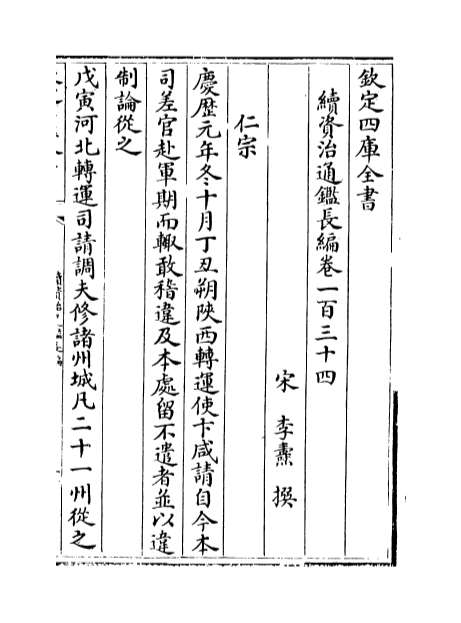 欽定四庫全書
續資治通鑑長編卷一百三十四
宋 李燾 撰
仁宗
慶歴元年冬十月丁丑朔陝西轉運使卞咸請自今本
司差官赴軍期而輙敢稽違及本處留不遣者並以違
制論從之
戊寅河北轉運司請調夫修諸州城凡二十一州從之